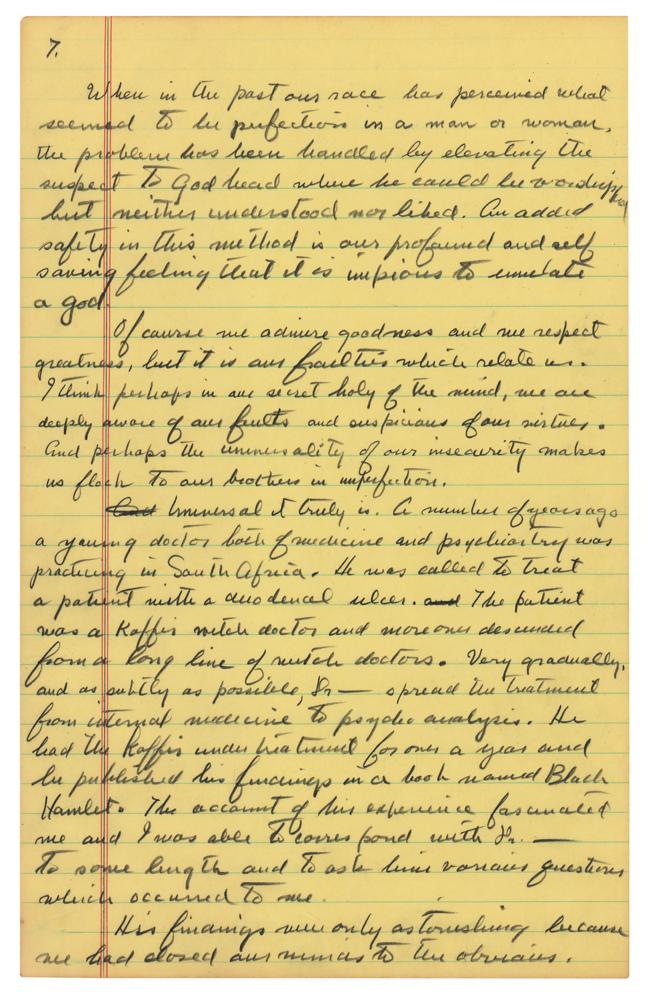 7.
When in the past our race has perceived what
seemed to be perfection in a man or woman,
the problem has been handled by elevating the
suspect to God head where he could be worshipped
but neither understood nor liked. An added
safety in this method is our profound and self
saving feeling that it is impious to emulate
a god.
Of course we admire goodness and we respect
greatness, but it is our frailties which relate us.
I think perhaps in our secret holy of the mind, we are
deeply aware of our faults and suspicious of our virtues.
And perhaps the universality of our insecurity makes
us flock to our brothers in imperfection.
And Universal it truly is. A number of years ago
a young doctor both of medicine and psychiartry was
practicing in South Africa. He was called to treat
a patient with a duodenal ulcer. and The patient
was a Kaffir witch doctor and moreover descended
from a long line of witch doctors. Very gradually,
and as subtly as possible, Dr — spread the treatment
from internal medicine to psycho analysis. He
had the Kaffir under treatment for over a year and
he published his findings in a book named Black
Hamlet. The account of his experience fascinated
me and I was able to correspond with Dr. —
to some length and to ask him various questions
which occurred to me.
His findings were only astonishing because
we had closed our minds to the obvious.